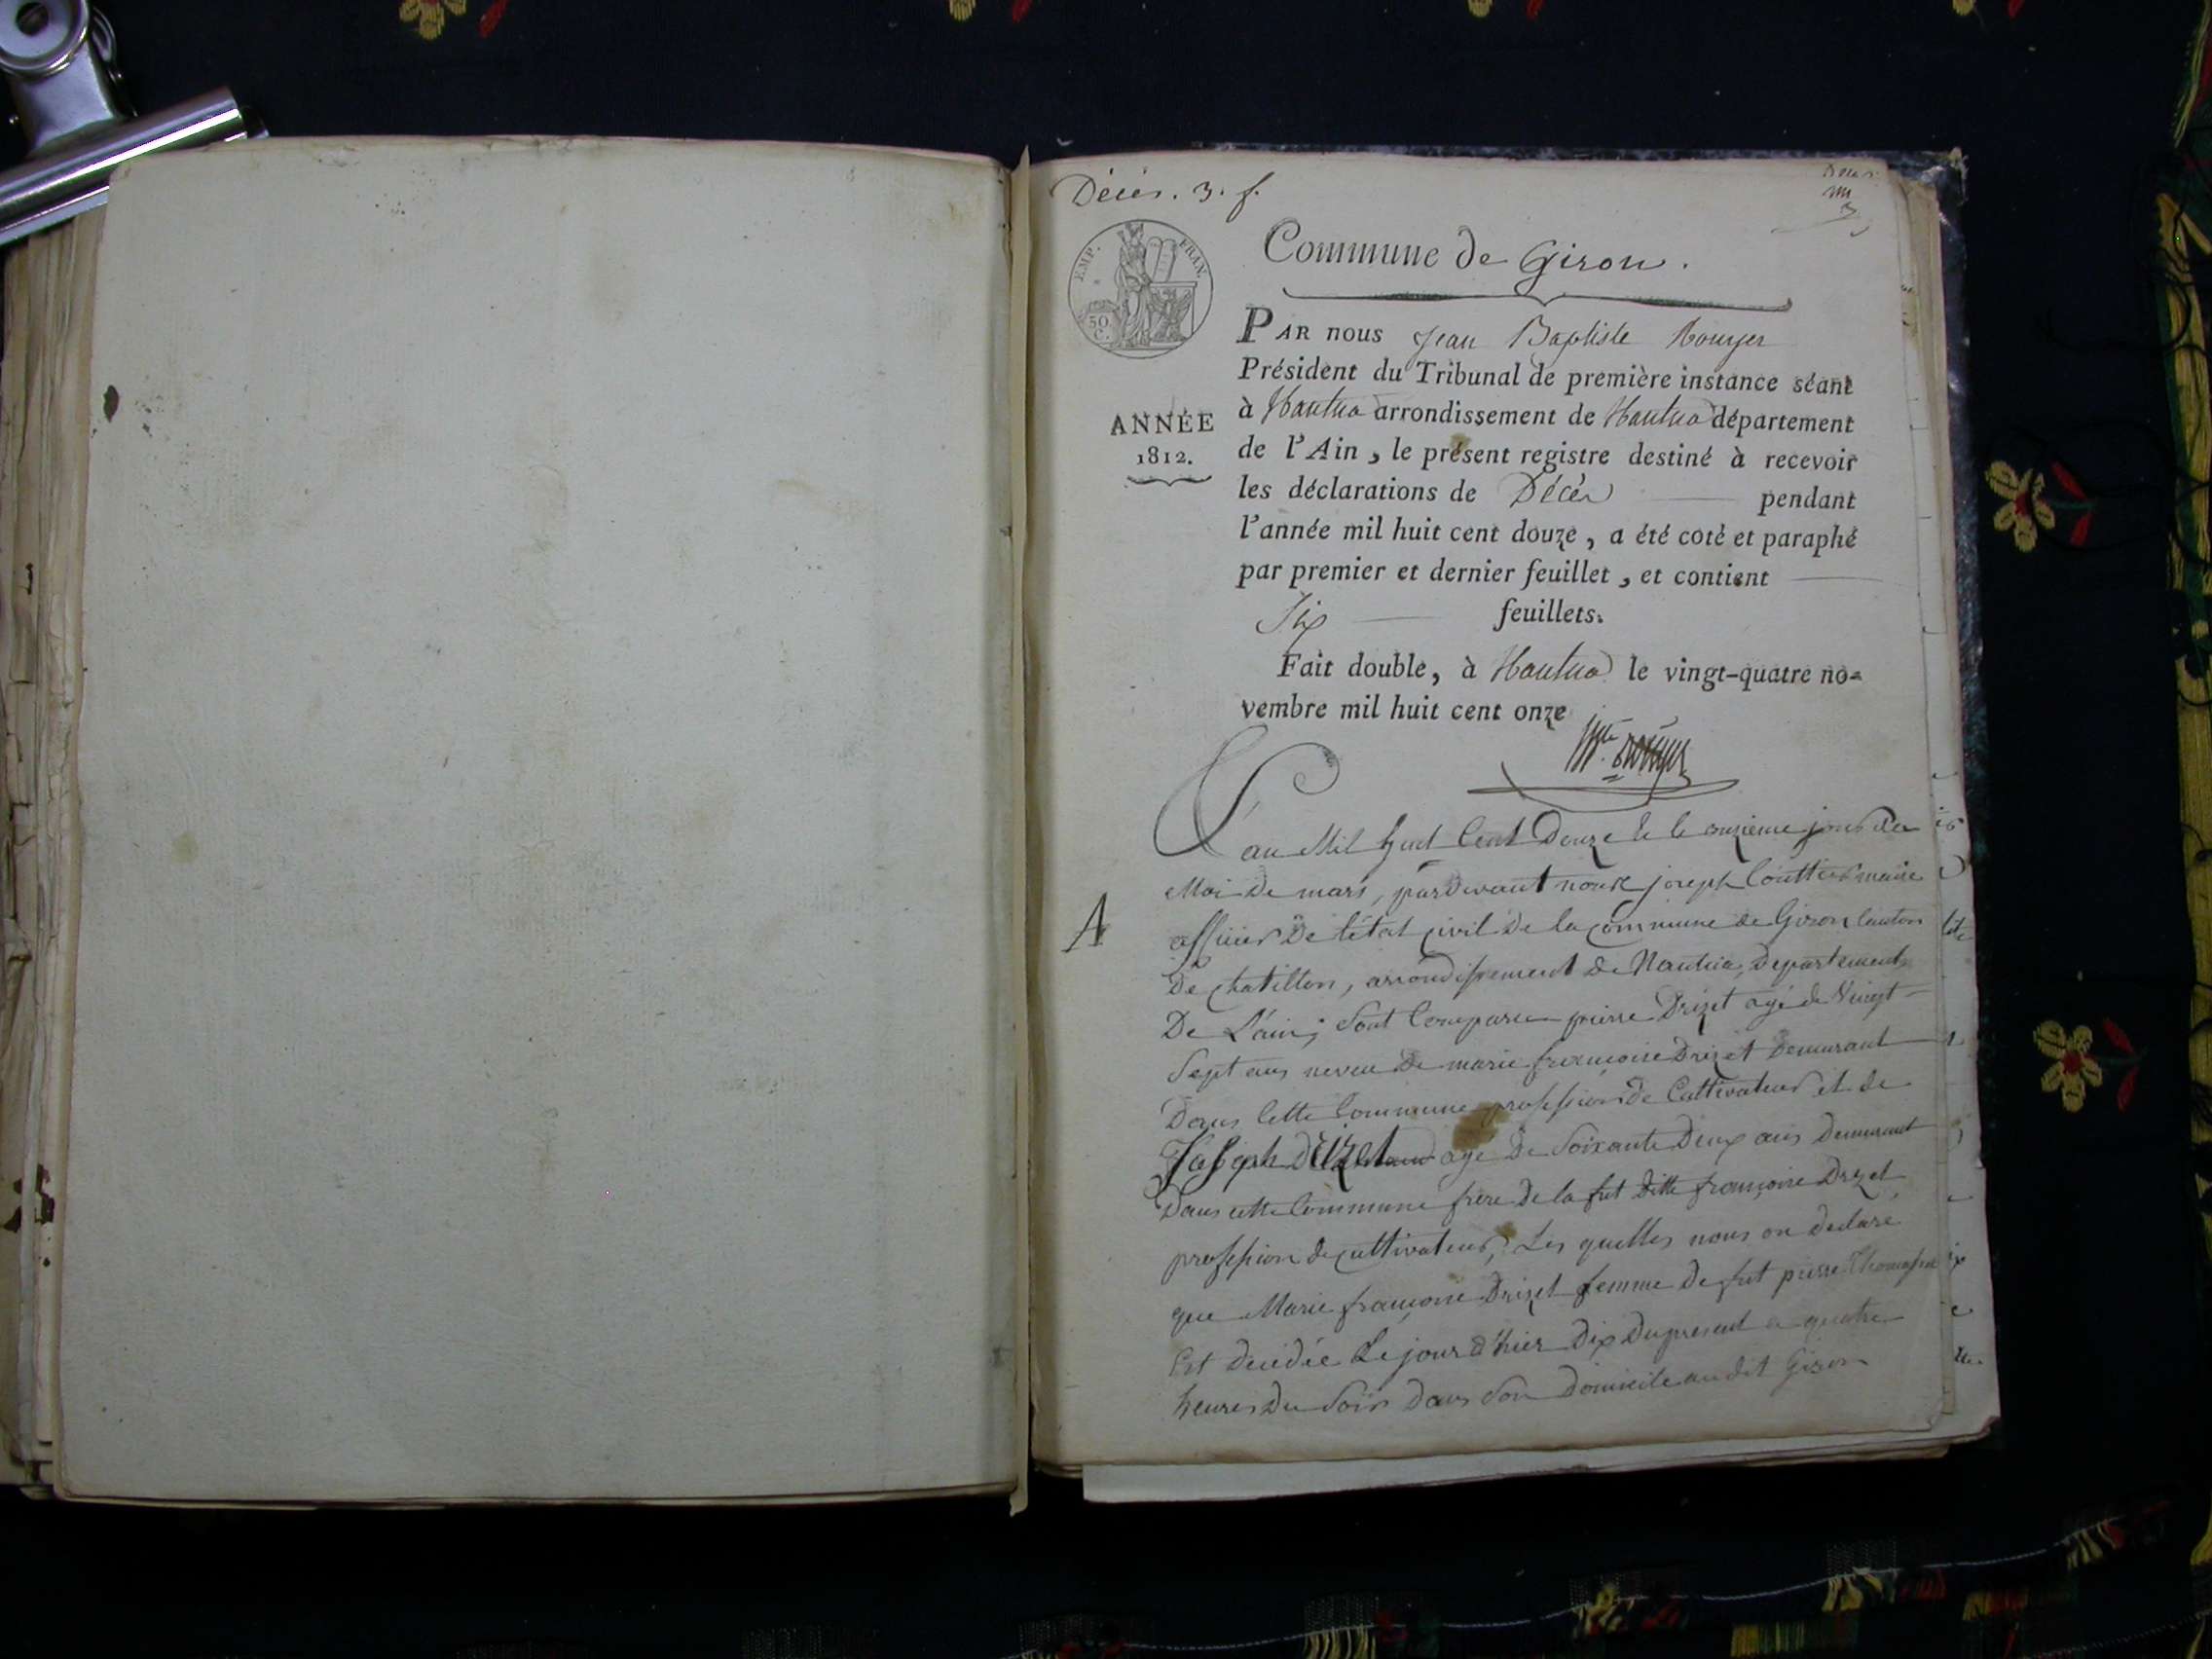 Décès. 3. f.
Décès
Commune de Giron.
EMP. FRAN.
50
C.
PAR nous Jean Baptiste Rouyer
Président du Tribunal de première instance séant
à Nantua arrondissement de Nantua département
ANNÉE
1812.
de l'Ain, le présent registre destiné à recevoir
les déclarations de Décès pendant
l'année mil huit cent douze, a été coté et paraphé
par premier et dernier feuillet, et contient
Six feuillets.
Fait double, à Nantua le vingt-quatre no-
vembre mil huit cent onze
L'an Mil huit Cent Douze & le onzieme jour du
Moi de mars, pardevant nous joseph Couttier maire
A
officier De l'état civil De la Commune de Giron Canton
De chatillon, arrondissement de Nantua, Departement
De L'ain; Sont Comparu pierre Drizet agé de Vingt-
Sept ans neveu De marie françoise Drizet Demurant
Dans Cette Commune profession de Cultivateur et de
Joseph drizet agé De Soixante Deux ans Demurant
Dans cette Commune frere De la fut ditte françoise Drizet
profession de cultivateur, Les quelles nous on declaré
que Marie françoise Drizet femme De fut pierre Thomasset
Est Decidée Le jour d'hier Dix Du present a quatre
heures Du Soir dans Son Domicile au dit Giron